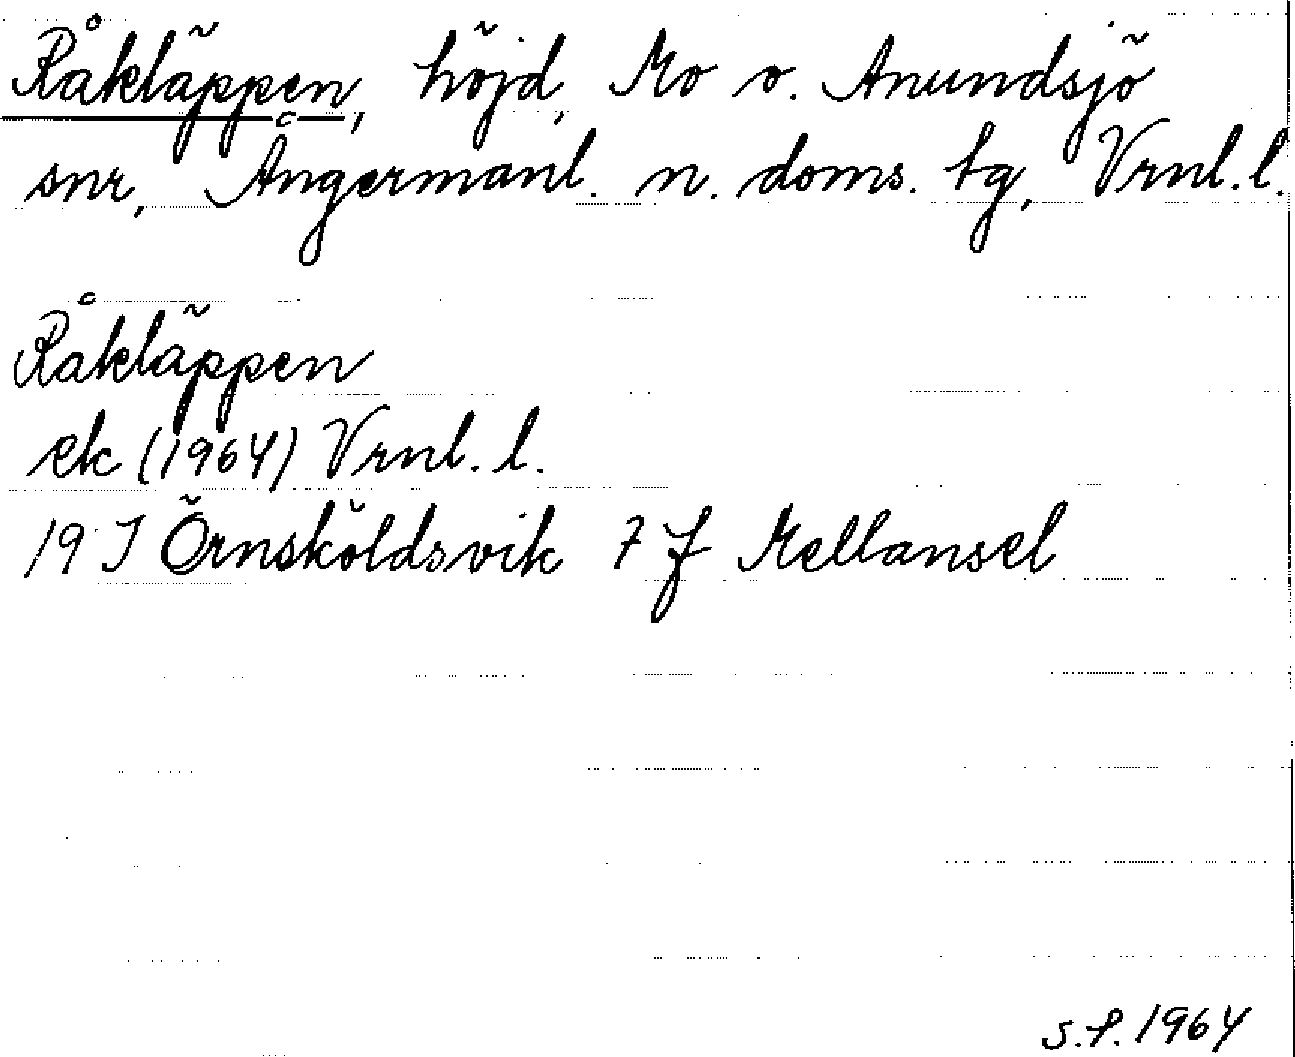 Råkläppen, höjd, Mo o. Anundsjö
snr, Ångermanl. n. doms. tg, Vrnl. l.
Råkläppen
ek (1964) Vrnl. l.
19 I Örnsköldsvik 7 f Mellansel
S.f. 1964